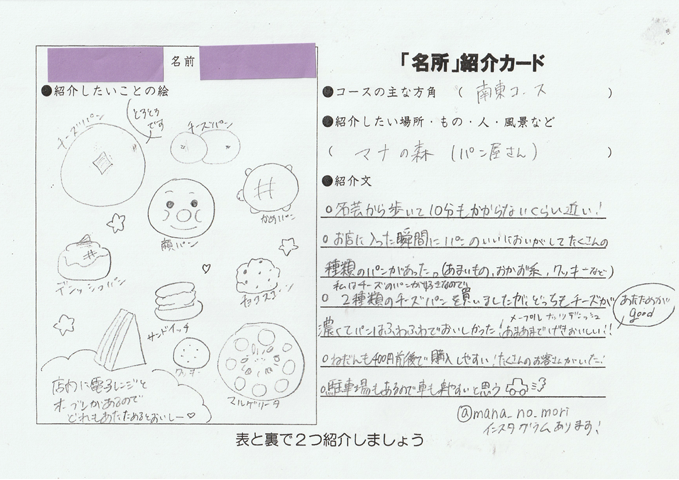 名前
●紹介したいことの絵
とろとろです
チーズパン
チーズパン
顔パン
かめパン
デニッシュパン
サンドイッチ
チョコスコーン
クッキー
マルゲリータ
店内に電子レンジと
オーブンがあるので
どれもあたためるとおいしー♡
「名所」紹介カード
●コースの主な方角 ( 南東コース )
●紹介したい場所・もの・人・風景など
( マナの森 (パン屋さん) )
●紹介文
○名芸から歩いて10分もかからないくらい近い!
○お店に入った瞬間にパンのいいにおいがしてたくさんの
種類のパンがあった。(あまいもの,おかず系,クッキーなど)
私はチーズのパンが好きなので
○2種類のチーズパンを買いましたが、どっちもチーズが
濃くてパンはふわふわでおいしかった!
メープルナッツデニッシュ
あまあまで おいしい!!
あたためが good
○ねだんも400円前後で購入しやすい!たくさんのお客さんがいた!
○駐車場もあるので車も来やすいと思う
@mana_no_mori
インスタグラムあります!
表と裏で2つ紹介しましょう